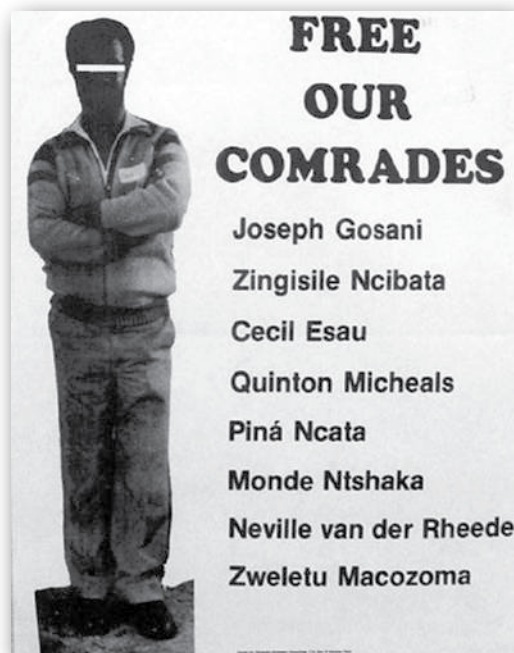 FREE
OUR
COMRADES
Joseph Gosani
Zingisile Ncibata
Cecil Esau
Quinton Micheals
Piná Ncata
Monde Ntshaka
Neville van der Rheede
Zweletu Macozoma